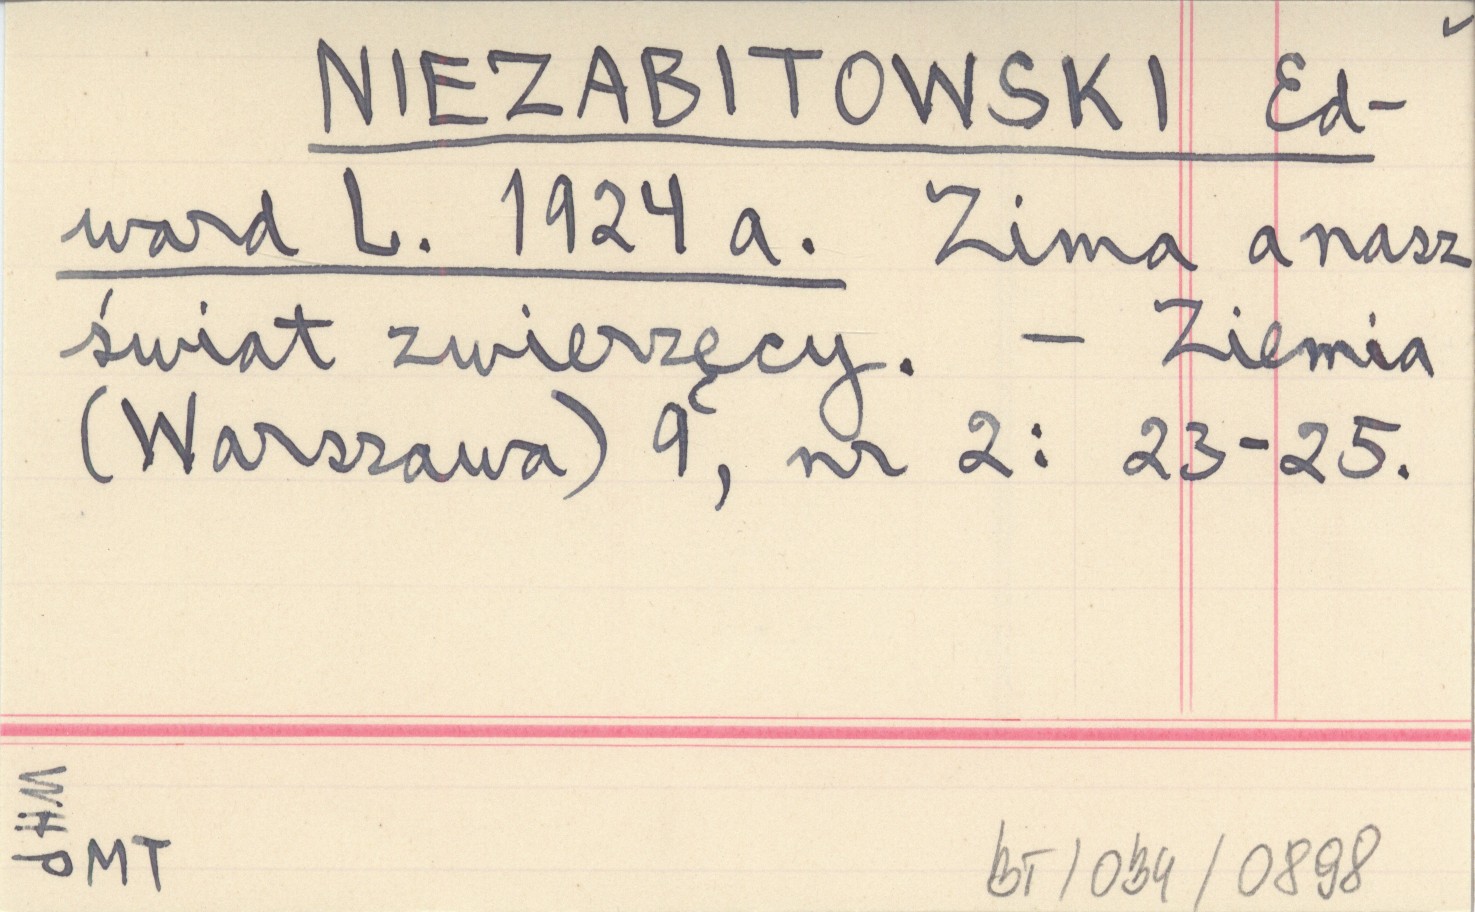 NIEZABITOWSKI Ed-
ward L. 1924 a. Zima a nasz
świat zwierzęcy. – Ziemia
(Warszawa) 9, nr 2: 23-25.
WHP
MT
BT/034/0898